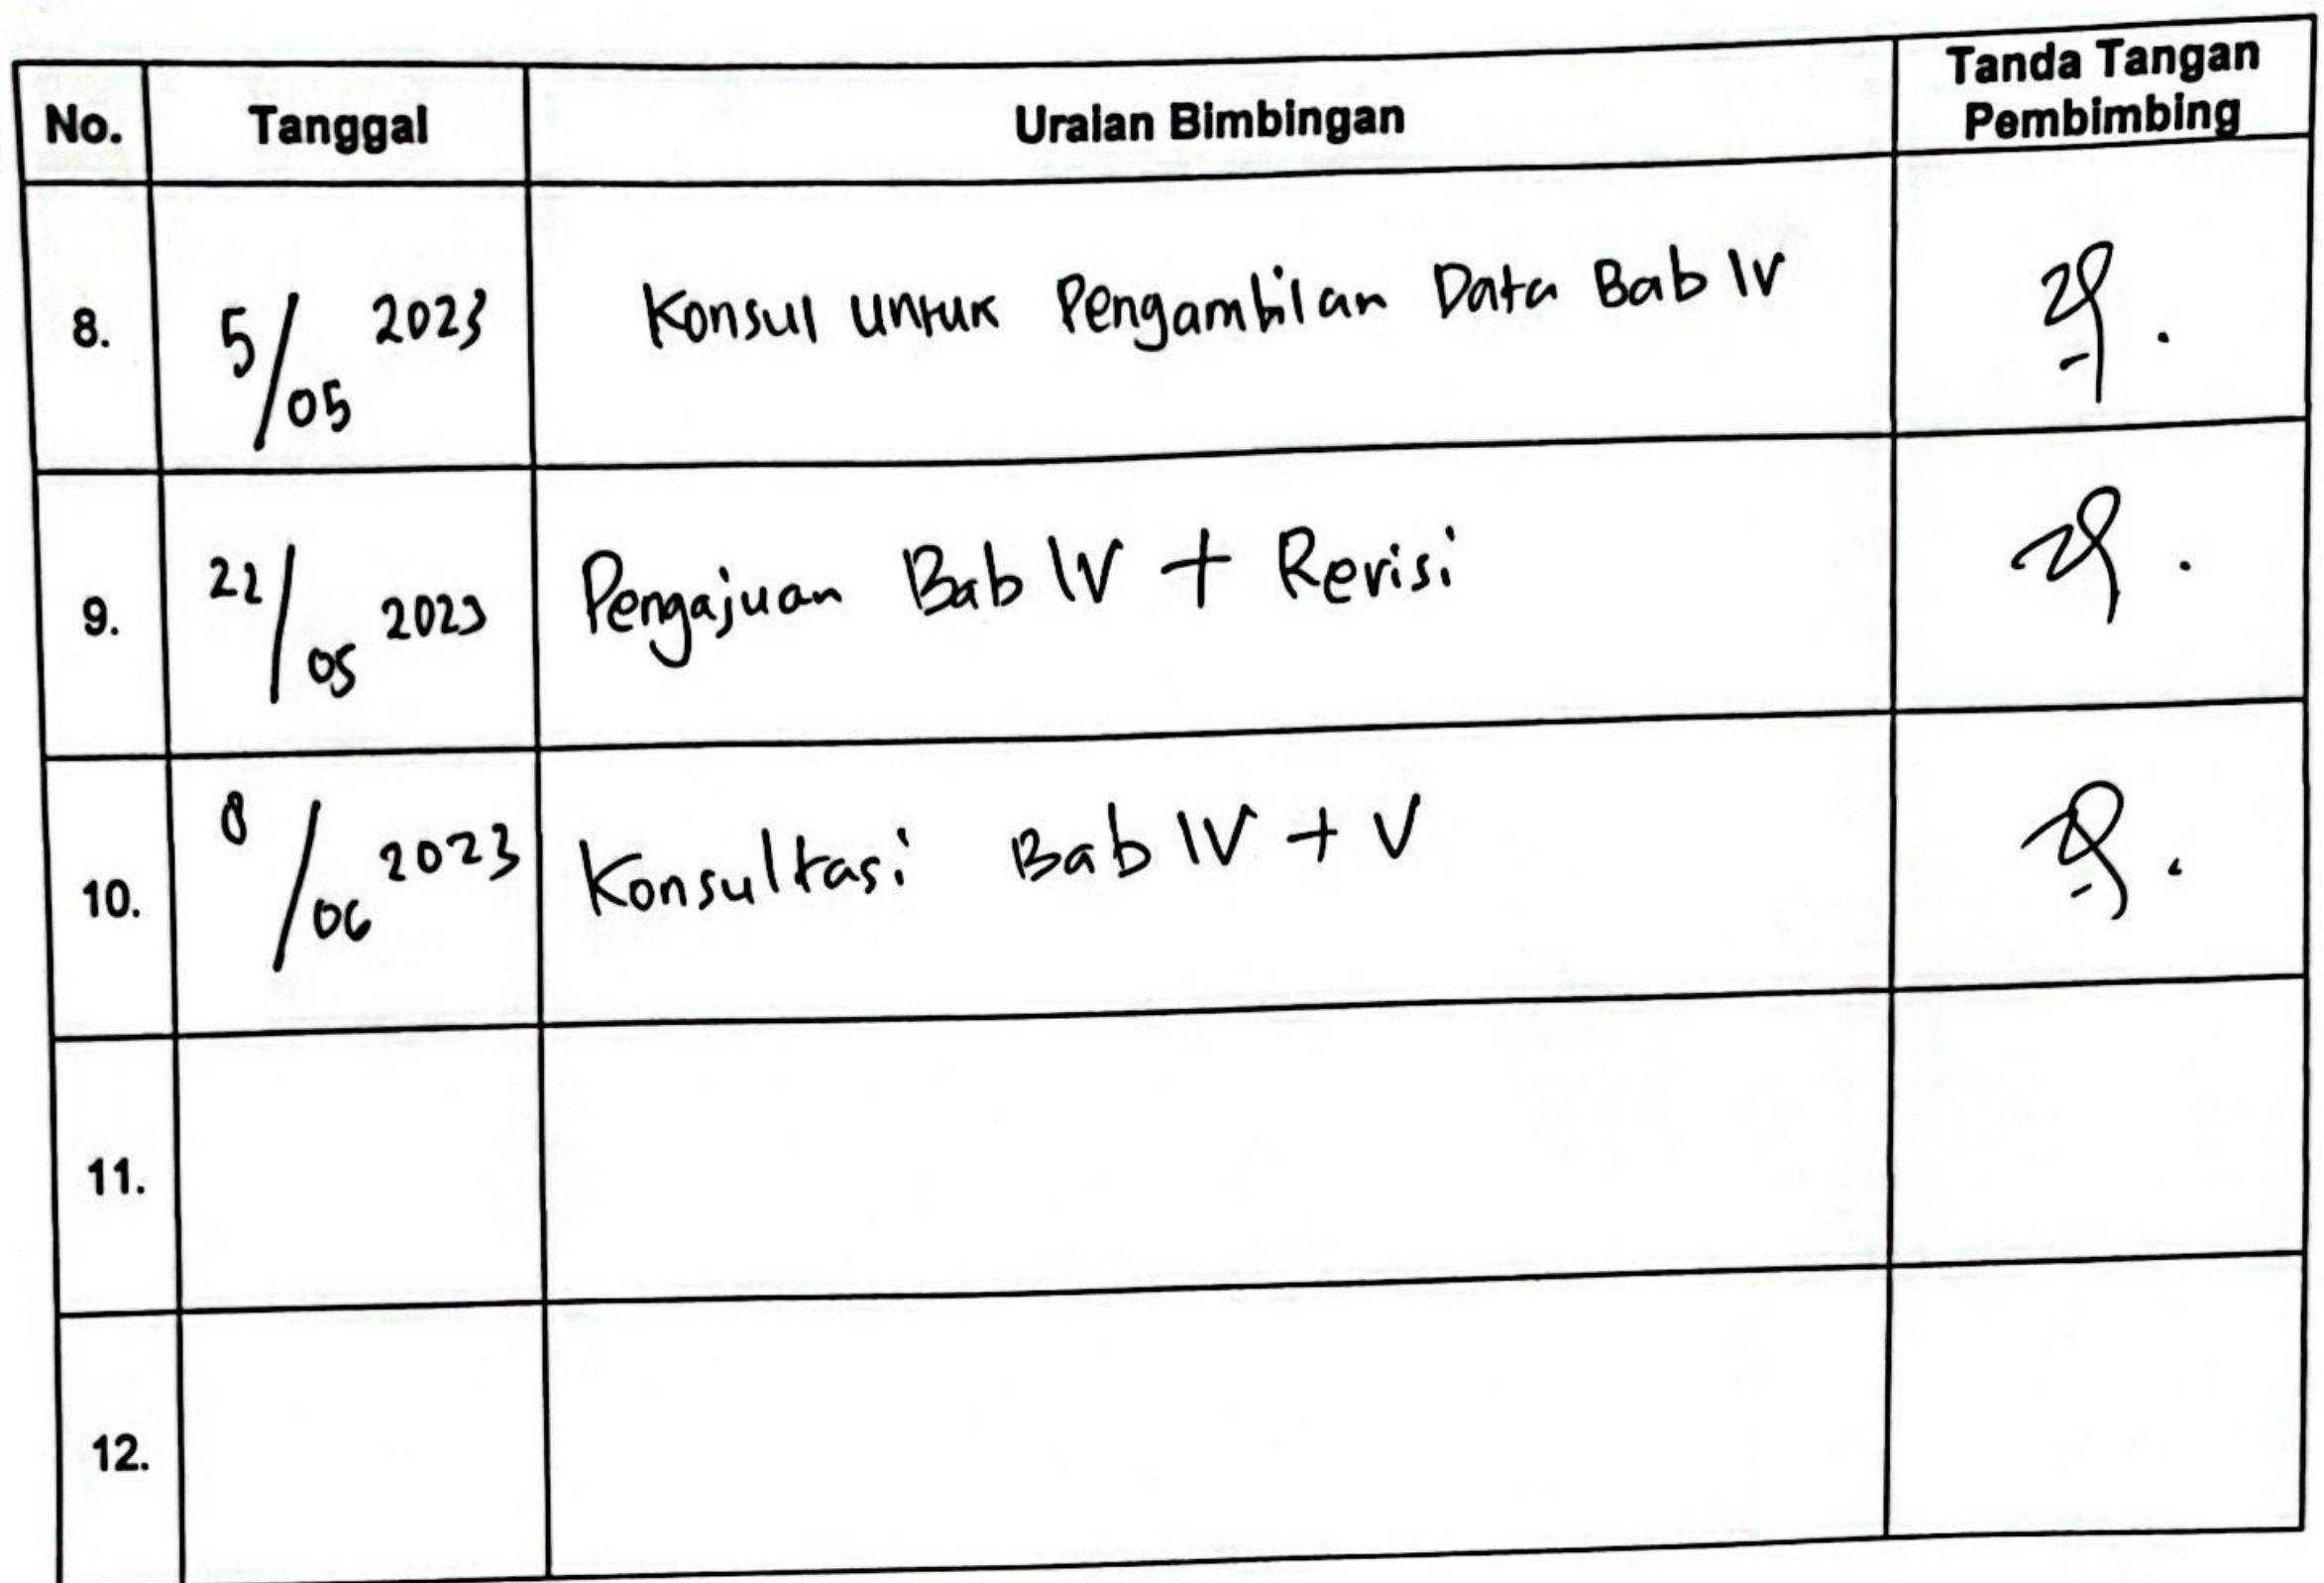 No. Tanggal Uraian Bimbingan Tanda Tangan
Pembimbing
8. 5/05 2023 Konsul untuk Pengambilan Data Bab IV
9. 22/05 2023 Pengajuan Bab IV + Revisi
10. 8/06 2023 Konsultasi Bab IV + V
11.
12.